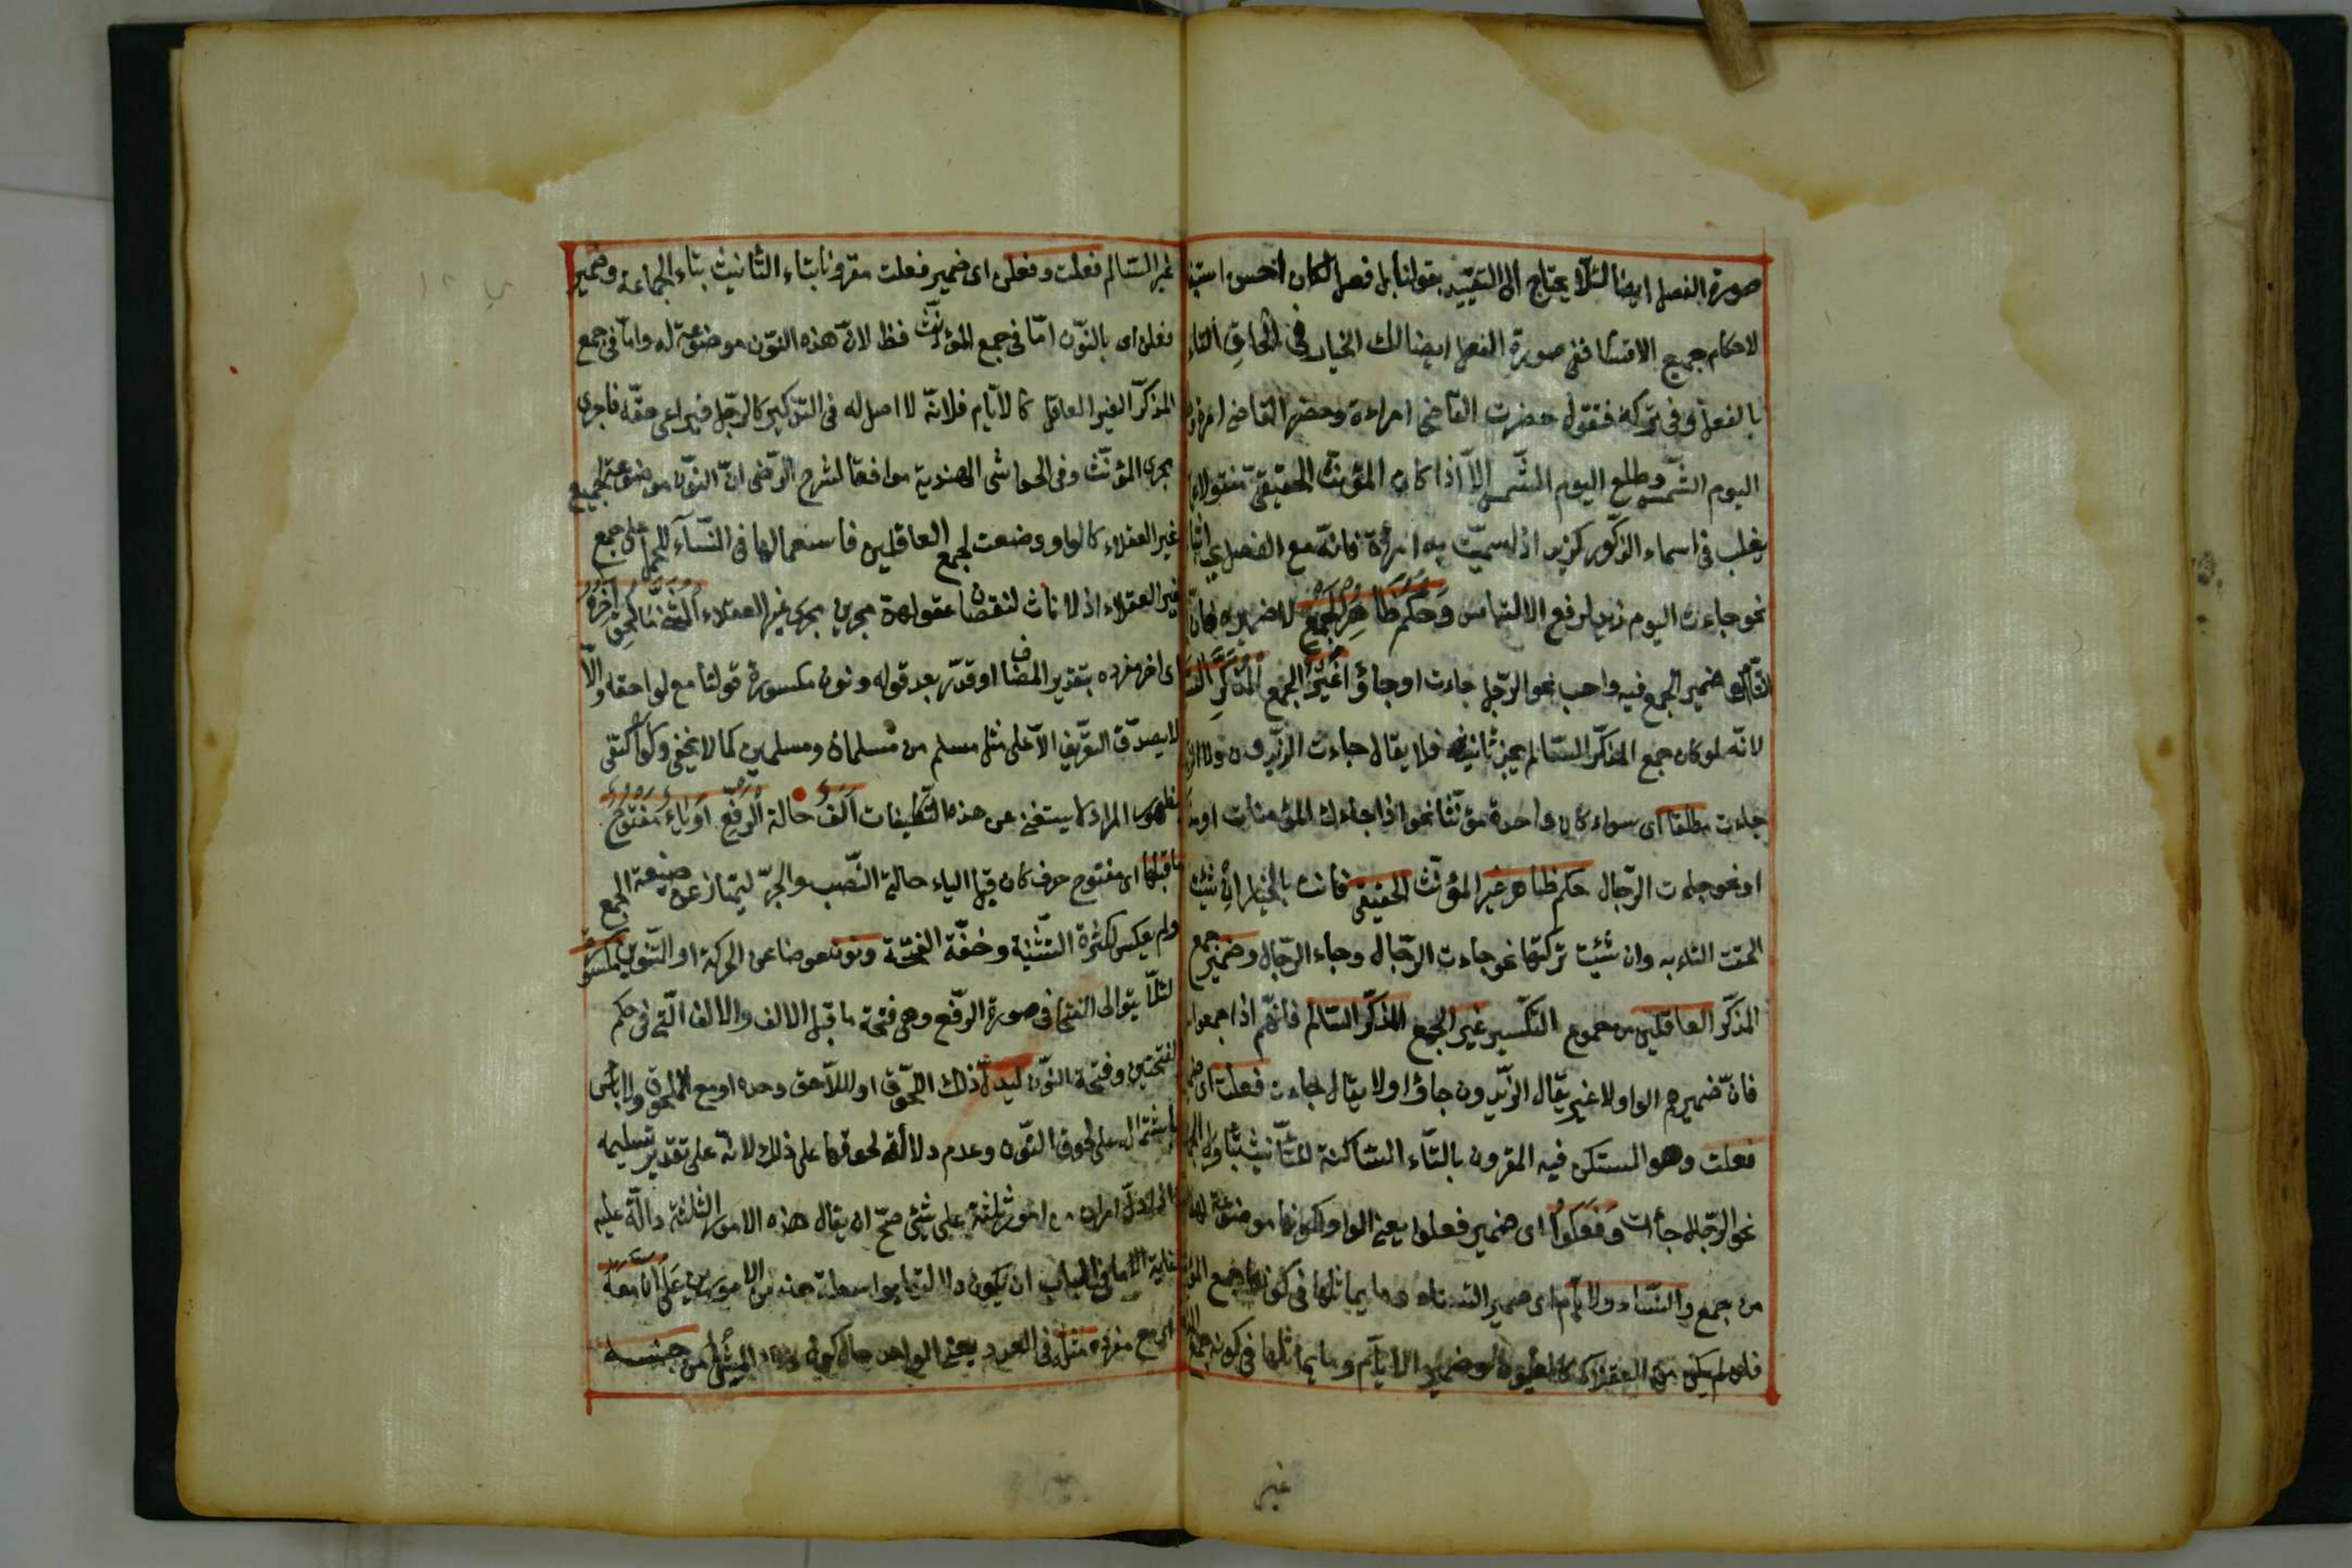 صورة الفصل ايضا لئلا يحتاج الى التقييد بقولنا بلا فصل لكان احسن
لاحكام جميع الاقسام ففى صورة الفصل ايضا لك الخيار فى الحاق التاء
بالفعل وفى تركه فتقول حضرت القاضى امراءة وحضر القاضى
اليوم الشّمس وطلع اليوم الشّمس الّا اذا كان المؤنث الحقيقى منقولا
يغلب فى اسماء الذّكور كزيد اذا سمّيت به امرأة فانّه مع الفصل
نحو جاءت اليوم زيد لرفع الالتباس وحكم ظاهر الجمع لا ضميره
ضمير الجمع فيه واجب نحو الرّجال جاءت او جاؤا غير الجمع المذكّر
لانّه لو كان جمع المذكّر السّالم لم يجز تانيثه فلا يقال جاءت الزّيدون
جاءت مطلقا اى سواء كان واحده مؤنّثا نحو اذا جاءك المؤمنات
او نحو جاءت الرّجال حكم ظاهر غير المؤنّث الحقيقى فانت بالخيار ان شئت
الحقت التاء به وان شئت تركتها نحو جاءت الرّجال وجاء الرّجال وضمير جمع
المذكّر العاقلين من جموع التّكسير غير الجمع المذكّر السّالم فانّهم اذا جمعوا
فانّ ضميرهم الواو لا غير يقال الزّيدون جاؤا ولا يقال جاءت فعلت اى
فعلت وهو المستكن فيه المقرون بالتّاء السّاكنة للتّأنيث
نحو الرّجال جاءت وفعلوا اى ضمير فعلوا يعنى الواو لكونها موضوعة لها
من جمع والنّساء والايّام اى ضمير النساء وما يماثلها فى كونها جمع
فان لم يكن من العقلاء كالعيون وضمير الايّام وما يماثلها فى كونه جمع
غير
غير السّالم فعلت وفعلن اى ضمير فعلت مقرونا بتاء التّانيث بتاء الجماعة وضمير
فعلن اى بالنّون امّا فى جمع المؤنّث فظ لانّ هذه النّون موضوعة له وامّا فى جمع
المذكّر الغير العاقل كالايّام فلانّه لا اصل له فى التّذكير كالرّجل فيراعى حقّه فاجرى
مجرى المؤنّث وفى الحواشى الهندية موافقا لشرح الرّضى انّ النّون موضوعة لجمع
غير العقلاء كالواو وضعت لجمع العاقلين فاستعمالها فى النّساء للحمل على جمع
غير العقلاء اذ لاناث لنقصان عقولهنّ مجرين مجرى غير العقلاء المثنّى ما لحق آخره
اى اخر مفرده بتقدير المضاف او قدّر بعد قوله ونون مكسورة قولنا مع لواحقه والّا
لا يصدّق التّعريف الّا على مثل مسلم من مسلمان ومسلمين كما لا يخفى ولو اكتفى
بظهور المراد لاستغنى عن هذه التّكليفات الف حالة الرّفع او ياء مفتوح
ما قبلها اى مفتوح حرف كان قبل الياء حالتى النّصب والجرّ ليمتاز عن صيغة الجمع
ولم يعكس لكثرة التّثنية وخفّة الفتحة ونون عوضا عن الحركة او التّنوين مكسورة
لئلّا يتوالى الفتحات فى صورة الرّفع وهى فتحة ما قبل الالف والالف الّتى فى حكم
الفتحتين وفتحة النّون ليدلّ ذلك اللّحوق او اللّاحق وحده او مع الملحوق ولا بأس
باشتماله على لحوق النّون وعدم دلالة لحوقها على ذلك لانّه على تقدير تسليمه
اذا دلّ امران من امور ثلثة على شئ صحّ ان يقال هذه الامور الثلثة دالّة عليه
غاية الامر فى الباب ان يكون دلالتها بواسطة هذين الامرين على انّ معه
اى مع مفرده مثله فى العدد يعنى الواحد حال كون ذلك المثل من جنسه